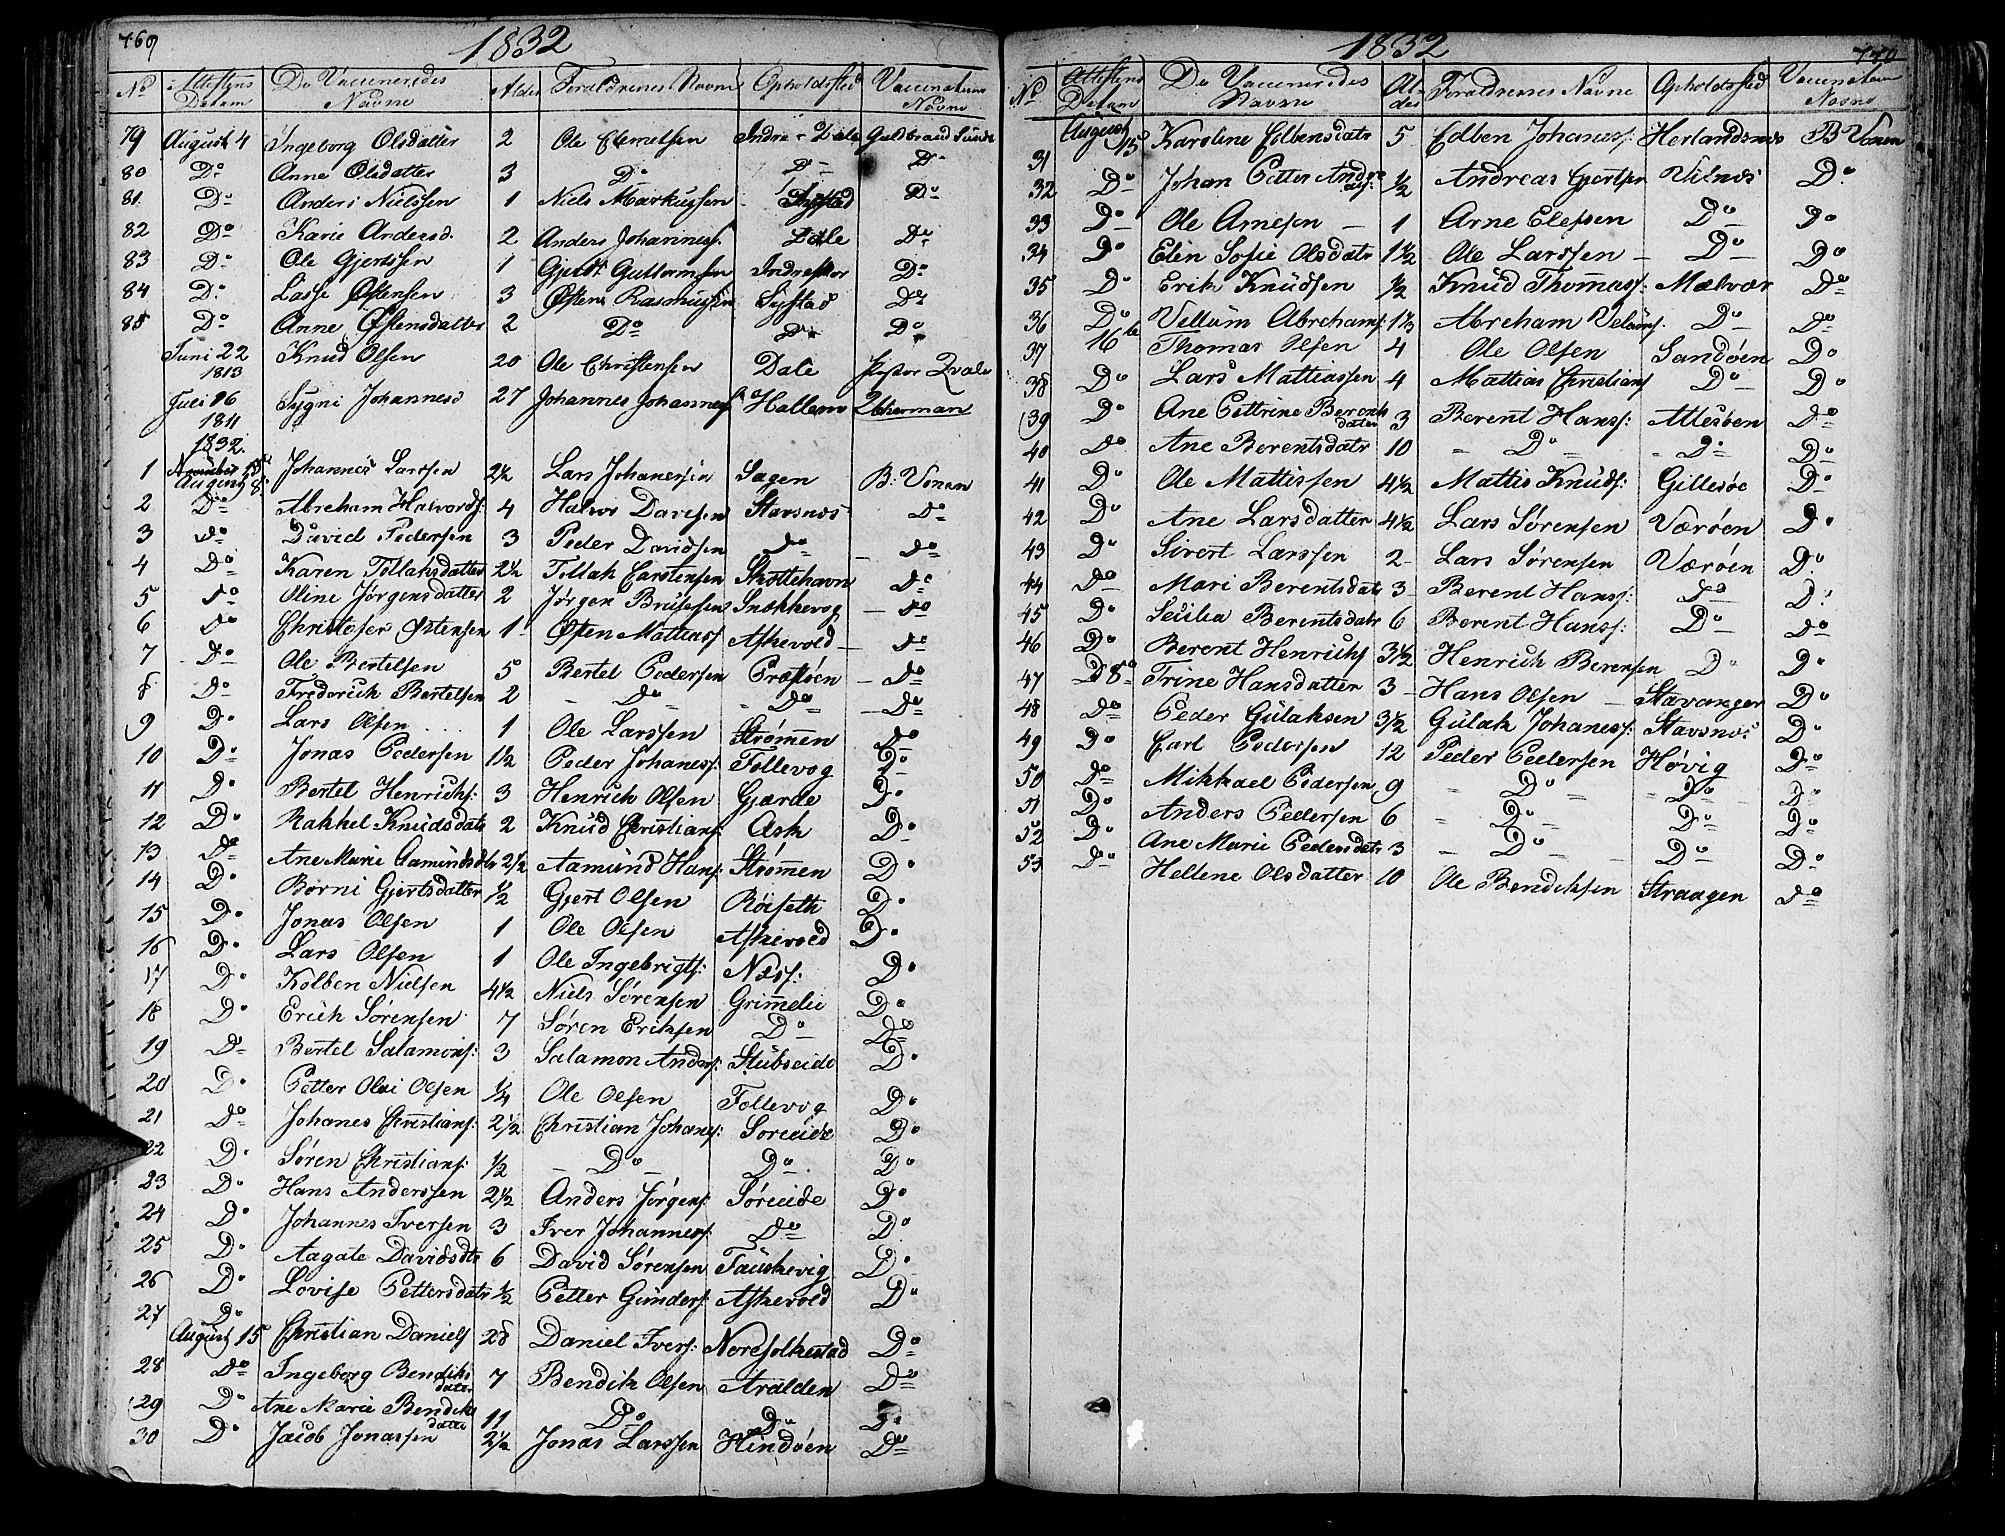 769
1832
No Attestens Datum De Vaccineredes Navne Alder Forældrenes Navne Opholdssted Vaccinateurs Navne
79 August 4 Ingeborg Olsdatter 2 Ole Guldbrand Sunde
80 Do Anne Olsdatter 3 Do Do Do
81 Do Anders Nielssen 1 Niels Markussen Do
82 Do Karie Andersd. 2 Anders Johannesf. Dale Do
83 Do Ole Gjertssen 1 Gjert Guttormsen Do
84 Do Lasse Østensen 3 Østen Rasmussen Systad Do
85 Do Anne Østensdatter 2 Do Do Do
Juni 22 1813 Knud Olsen 20 Ole Christensen Dale Pastor Qvale
Juli 16 1811 Sygni Johannesd 27 Johannes Johannesf Hallem
1832.
1 August 8 Johannes Larssen 2½ Lars Johanessen Sagen B: Vonen
2 Do Abreham Halvords: 4 Halvor Davisen Stavsnæs Do
3 Do David Pedersen 3 Peder Davidsen Do Do
4 Do Karen Tollaksdatter 2½ Tollak Carstensen Skottehavn Do
5 Do Oline Jørgensdatter 2 Jørgen Brusesen Snækkevog Do
6 Do Christofer Østensen 1 Østen Mattiasf Askevold Do
7 Do Ole Bertelsen 5 Bertel Pedersen Præstøen Do
8 Do Frederich Bertelsen 2 Do Do Do
9 Do Lars Olsen 1 Ole Larssen Strømen Do
10 Do Jonas Pedersen 1½ Peder Johanesf: Follevog Do
11 Do Bertel Henrichs: 3 Henrich Olsen Gjærde Do
12 Do Rakkel Knudsdatr 2 Knud Christians: Ask Do
13 Do Ane Marie Aamundsdtr 2½ Aamund Hans: Strømen Do
14 Do Berni Gjertsdatter ½ Gjert Olsen Röiseth Do
15 Do Jonas Olsen 1 Ole Olsen Askevold Do
16 Do Lars Olsen 1 Ole Ingebrigts: Næss: Do
17 Do Kolben Nielsen 4½ Niels Sørensen Grimelie Do
18 Do Erich Sørensen 7 Søren Eriksen Do Do
19 Do Bertel Salamons: 3 Salamon Anders: Stubseide Do
20 Do Petter Olai Olsen ¼ Ole Olsen Follevog Do
21 Do Johanes Christians: 2½ Christian Johans: Soreide Do
22 Do Søren Christians: ½ Do Do Do
23 Do Hans Anderssen 2½ Anders Jørgens: Søreide Do
24 Do Johannes Iversen 3 Iver Johannesf. Do Do
25 Do Aagate Davidsdtr 6 David Sørensen Fauskevig Do
26 Do Lovise Pettersdatr ½ Petter Gunders: Askevold Do
27 Do August 15 Christian Daniels 28 Daniel Ivers: Norefolkestad Do
28 Do Ingeborg Bendiksdater 7 Bendik Olsen Aralden Do
29 Do Ane Marie Bendiksdatter 11 Do Do Do
30 Do Jacob Jonassen 2½ Jonas Larssen Hindøen Do
770
1832
No Attestens Datum De Vaccineredes Navne Alder Forældrenes Navne Opholdssted Vaccinateurs Navne
31 August 15 Karoline Edbensdatr 5 Edben Johanesf: Herlandsnæs B Vonen
32 Do Johan Petter Andreasf: ½ Andreas Vilnæs Do
33 Do Ole Arnesen 1 Arne Elefsen Do Do
34 Do Elen Sofie Olsdatr 1½ Ole Larssen Do Do
35 Do Erik Knudsen ½ Knud Thomasf: Mælvær Do
36 Do Vellum Abrehamf: 1½ Abreham Velumf. Do Do
37 16de Thomas Olsen 4 Ole Olsen Sandøen Do
38 Do Lars Mattiassen 4 Mattias Christians Do Do
39 Do Ane Pettrine Berentsdater 3 Berent Hansf: Attesøen Do
40 Do Ane Berentsdatr 10 Do Do Do
41 Do Ole Mattissen 4½ Mattis Knuds: Gillesøe Do
42 Do Ane Larsdatter 4½ Lars Sørensen Værøen Do
43 Do Sivert Larssen 2 Lars Sørensen Værøen Do
44 Do Mari Berentsdatr 3 Berent Hansf: Do Do
45 Do Secilia Berentsdatr 6 Berent Hansf: Do Do
46 Do Berent Henrichs 3½ Henrich Berensen Do Do
47 D8o Trine Hansdatter 3 Hans Olsen Stavanger Do
48 Do Peder Gulaksen 3½ Gulak Johanesf: Stavsnæs Do
49 Do Carl Pedersen 12 Peder Pedersen Høvig Do
50 Do Mikkael Pedersen 9 Do Do Do
51 Do Anders Pedersen 6 Do Do Do
52 Do Ane Marie Pedersdatr 3 Do Do Do
53 Do Hellene Olsdatter 10 Ole Bendiksen Straagen Do